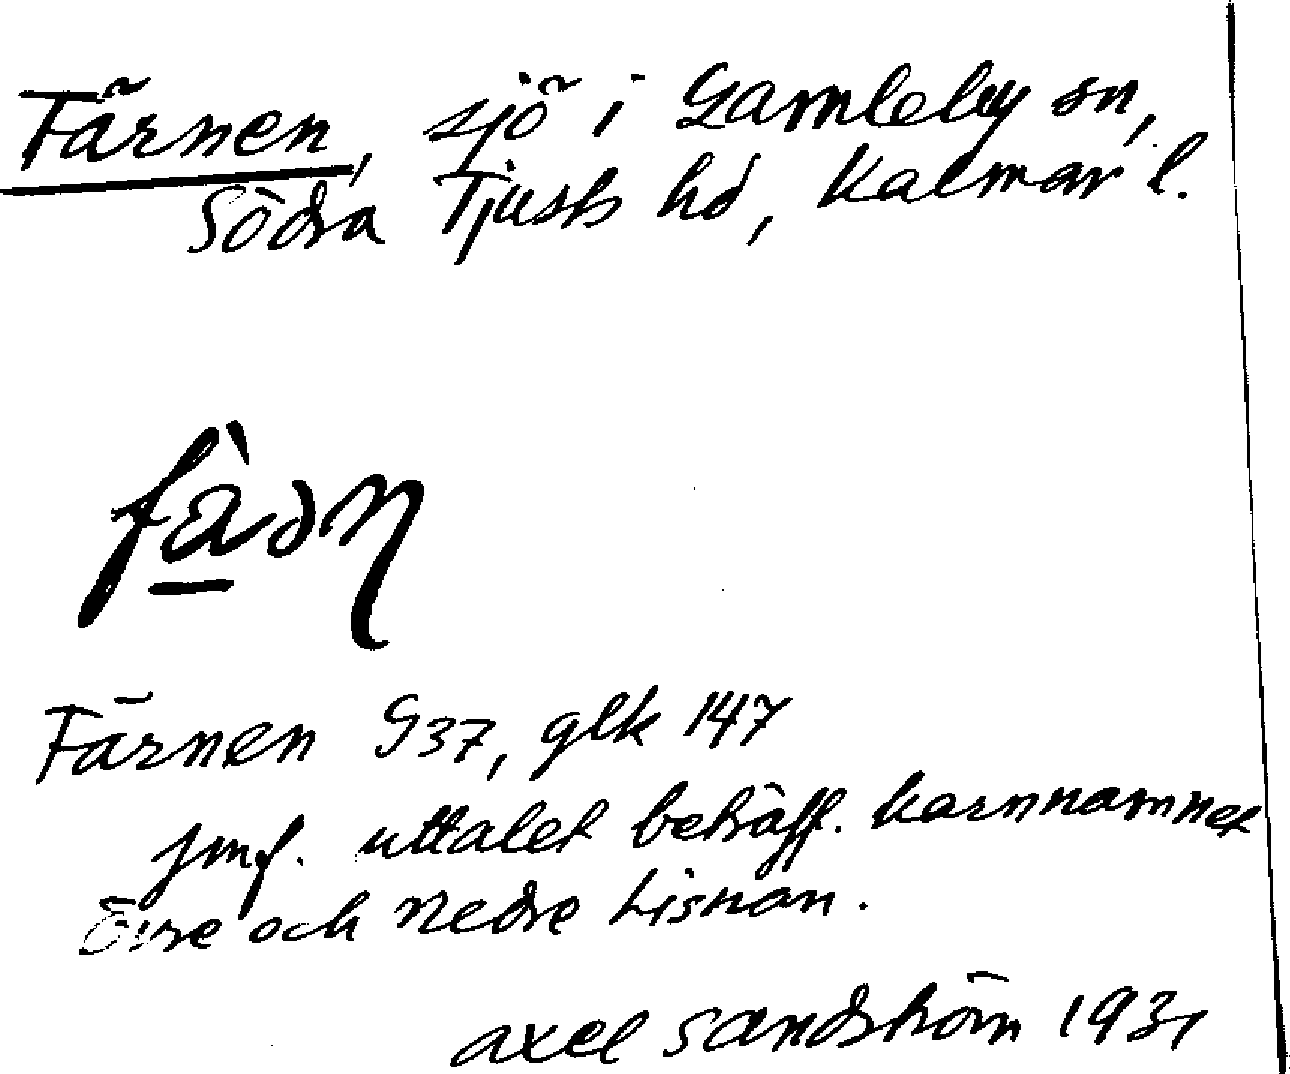 Färnen, sjö i Gamleby sn,
Södra Tjusts hd, Kalmar l.
Färnen G37, glk 147
jmf. uttalet beträff. karnnamnet
Övre och Nedre Lisnan.
Axel Sandström 1931